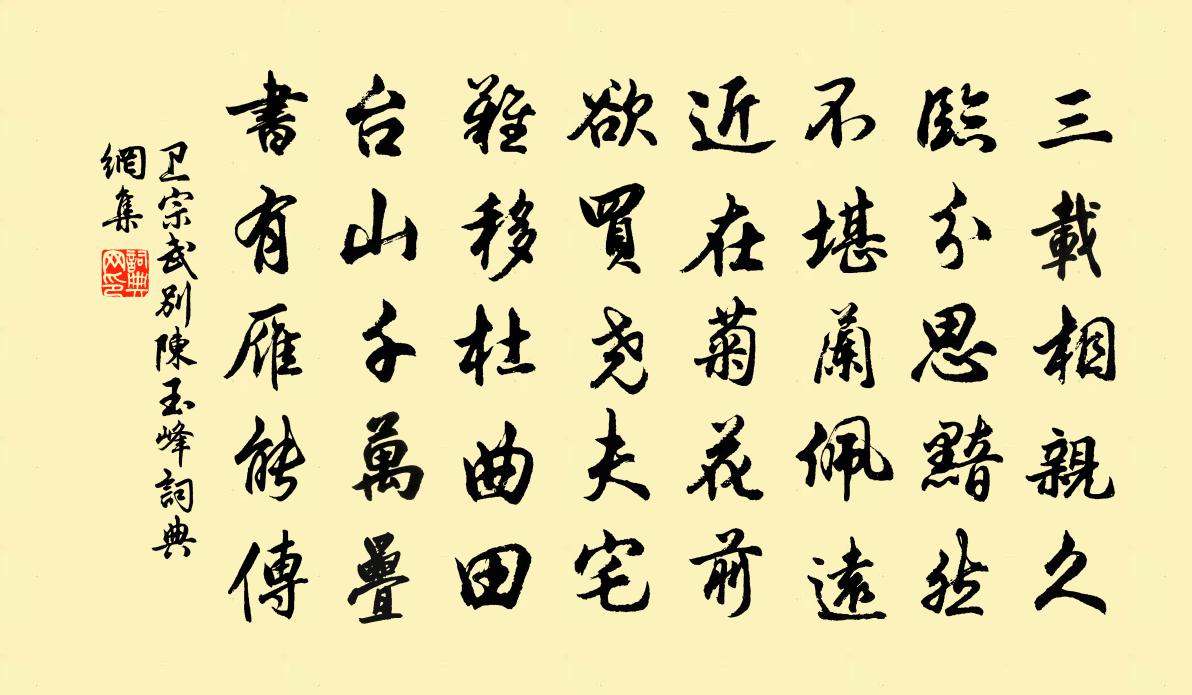 三載相親久
臨分思黯然
不堪蘭佩遠
近在菊花前
欲買尧夫宅
難移杜曲田
台山千萬疊
書有雁能傳
卫宗武別陳玉峰詞典
網集
詞典
网印